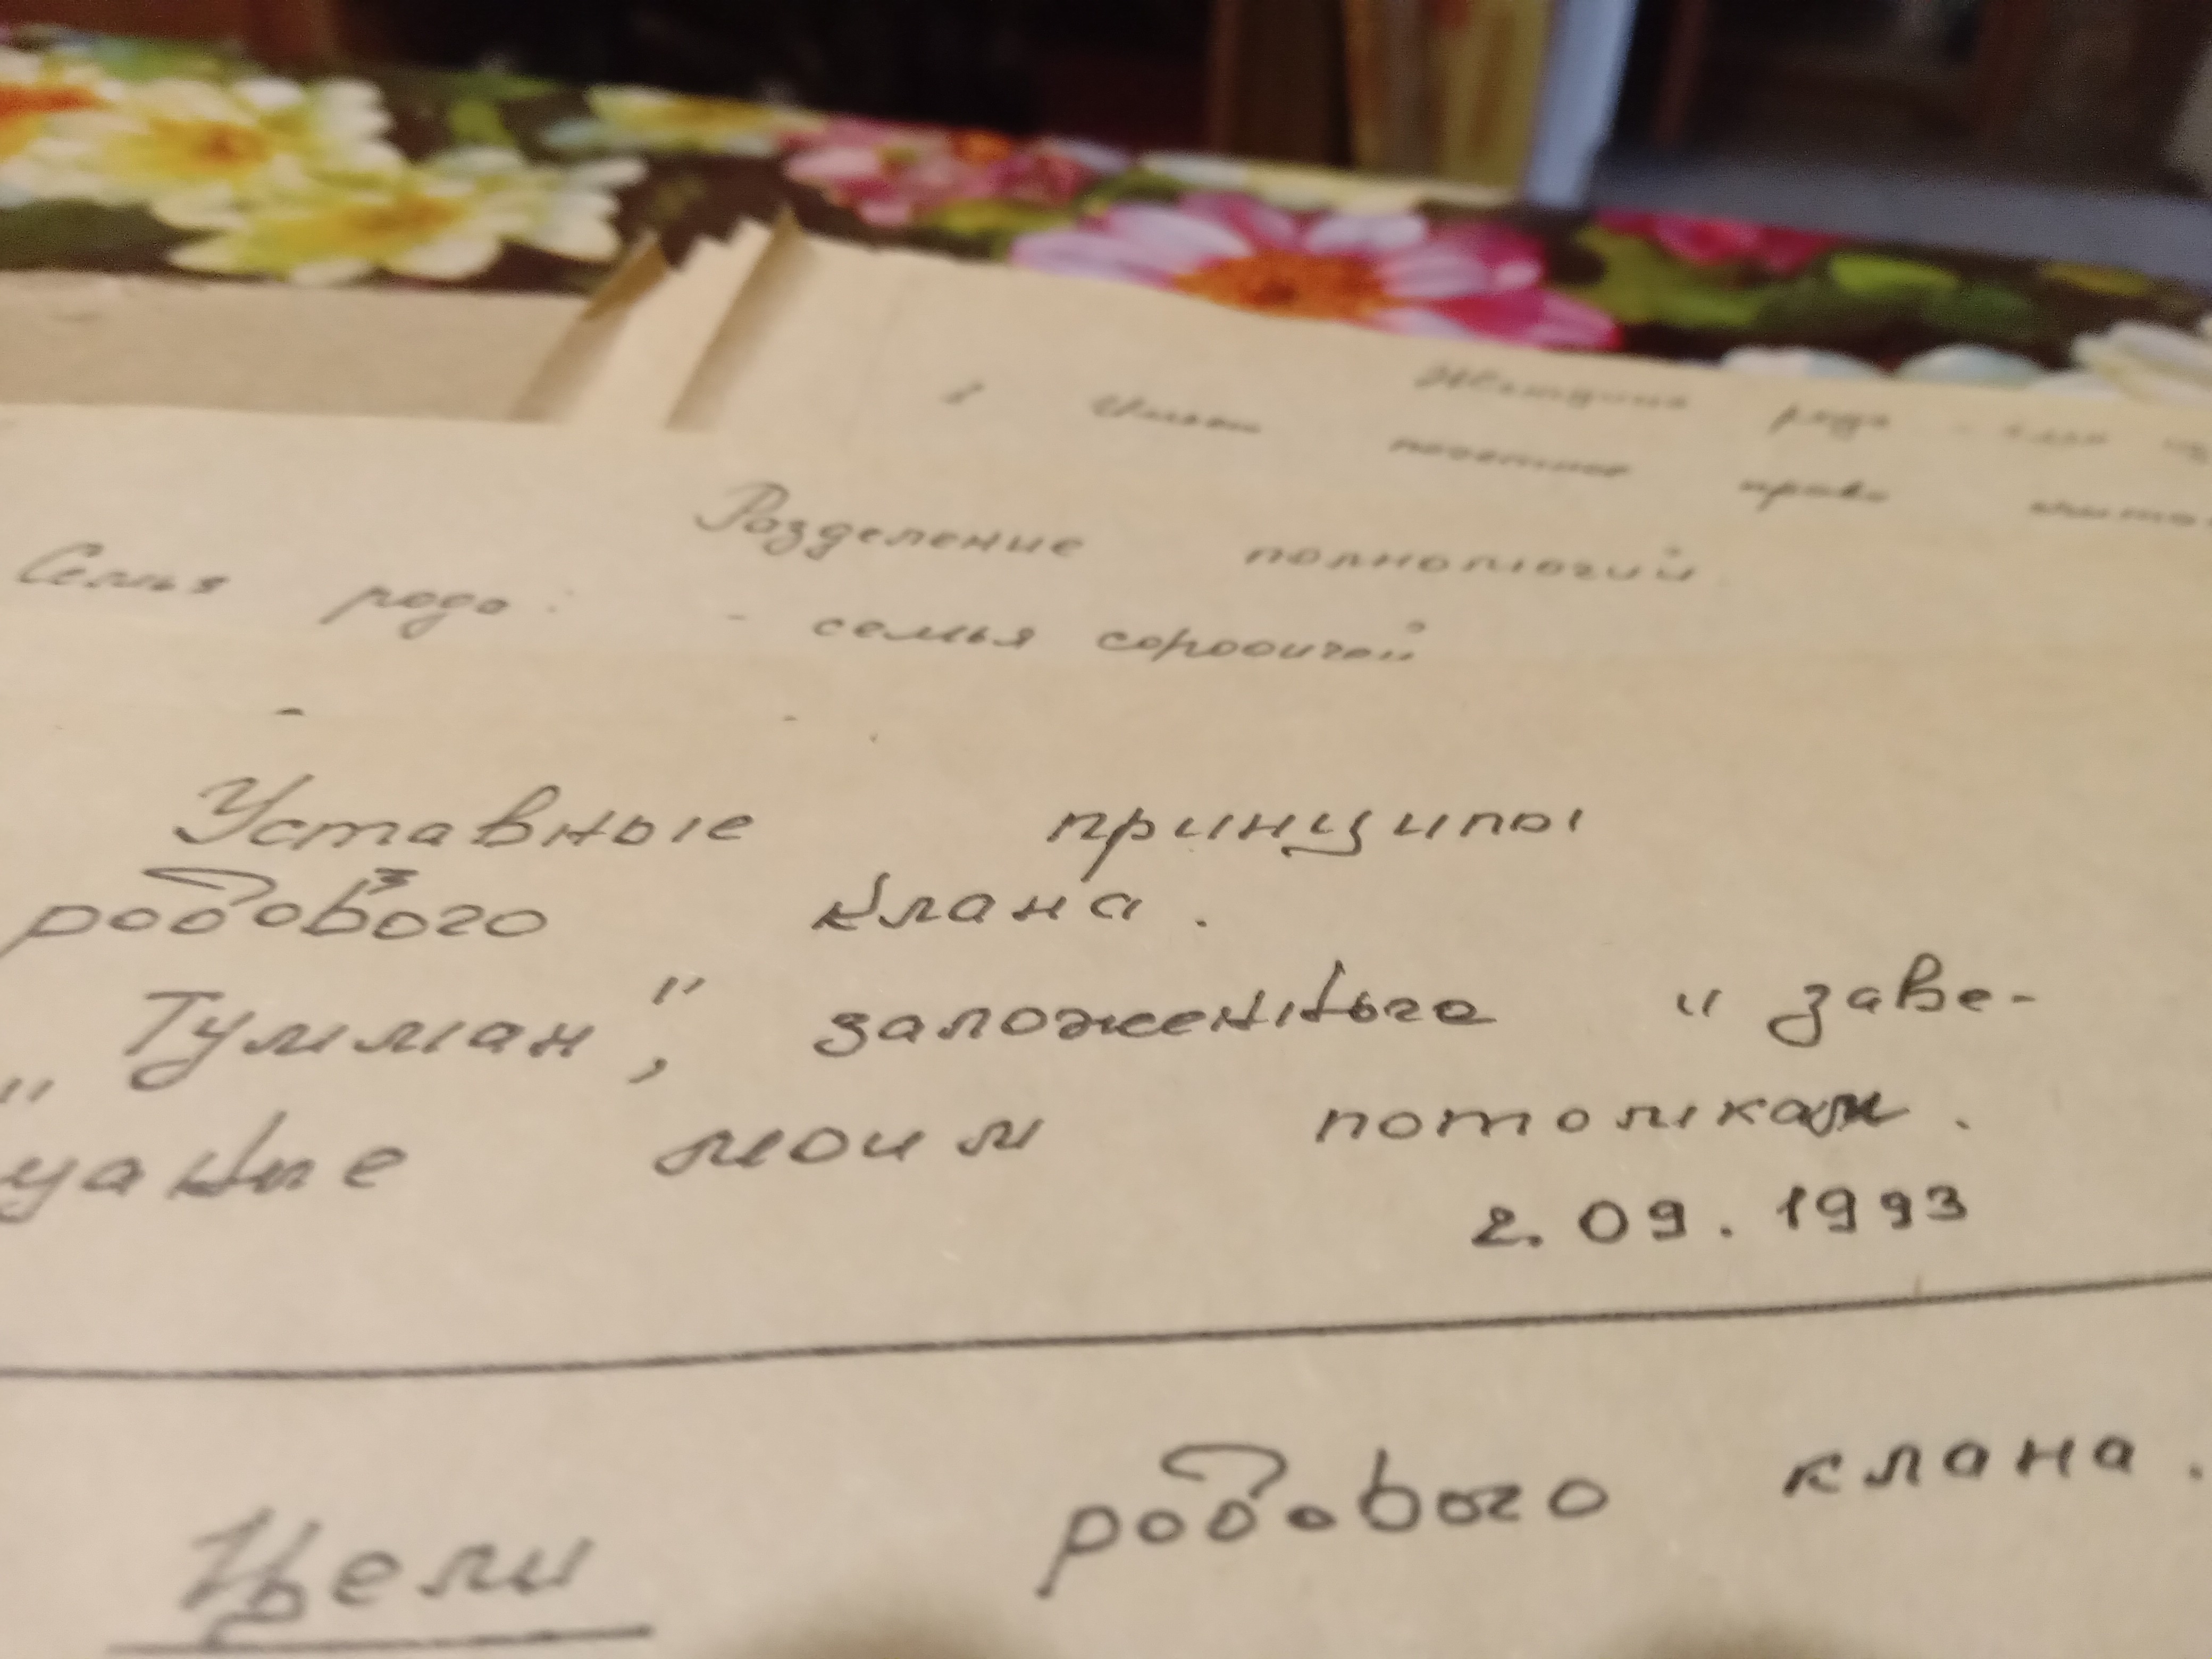 рода
право
Разделение полномочий
Семья рода: - семья
Уставные принципы
родового клана.
„Тумман", заложенные "заве-
щание моим потомкам.
2.09.1993
Цели родового клана.